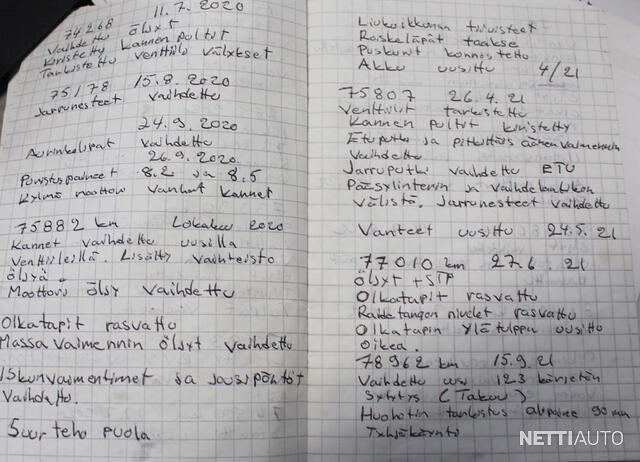 11.7.2020
74268 öljyt
Vaihdettu
Kiristetty kannen pultit
Tarkistettu venttiilo välykset
75178 15.8.2020
Jarrunesteet vaihdettu
24.9.2020
Aurinkolipat vaihdettu
26.9.2020
Puristuspaineet 8.2 ja 8.5
Kylmä moottori vanhat kannet
75882 km Lokakuu 2020
Kannet vaihdettu uusilla
Venttiileillä. Lisätty vaihteisto
öljyä.
Moottori öljy vaihdettu
Olkatapit rasvattu
Massa vaimennin öljyt vaihdettu
Iskunvaimentimet ja jousipöntöt
Vaihdettu.
Suurteho puola
Liukuikkunan tiivisteet
Roiskeläpät taakse
Puskurit kunnostettu
Akku uusittu 4/21
75807 26.4.21
Venttiilit tarkistettu
Kannen pultit kiristetty
Etuputki ja pitkittäis äänenvaimennin
Vaihdettu
Jarruputki vaihdettu ETU
Pääsylinterin ja vaihdelaatikon
välistä. Jarrunesteet vaihdettu
Vanteet uusittu 24.5.21
77010 km 27.6.21
Öljyt + STP
Olkatapit rasvattu
Raidetangon nivelet rasvattu
Olkatapin ylätulppa uusittu
Oikea.
78962 km 15.9.21
Vaihdettu uusi 123 kärjetön
Sytytys (Takuu)
Huohotin tarkistus alipaine 90 mm
Tyhjäkäynti
NETTIAUTO